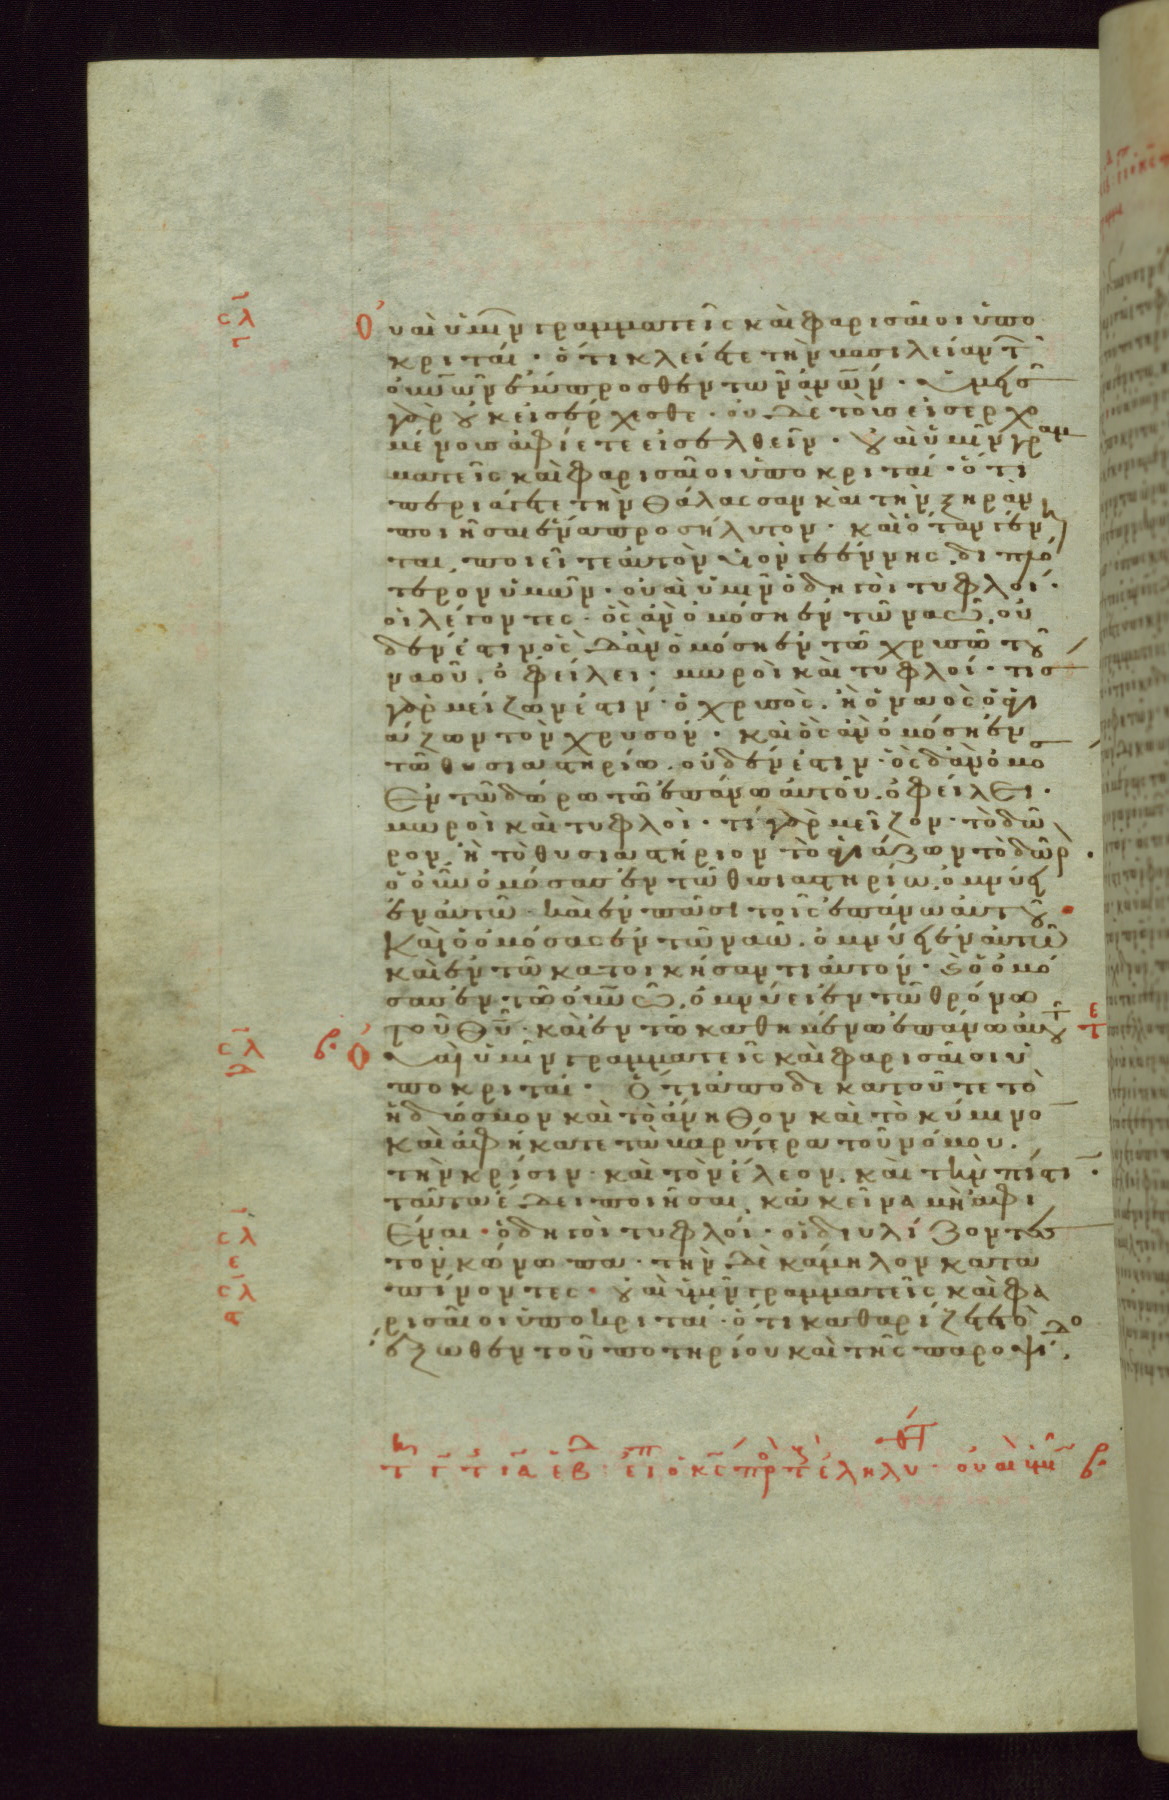 Οὐαὶ ὑμῖν γραμματεῖς καὶ φαρισαῖοι ὑπο
κριταί · ὅτι κλείετε τὴν βασιλείαν τ
οὐνῶν ἔμπροσθεν τῶν ἀνων · ὑμεῖς
γὰρ οὐκ εἰσέρχεσθε · οὐδὲ τοὺς εἰσερχο
μένους ἀφίετε εἰσελθεῖν · οὐαὶ ὑμῖν γραμ
ματεῖς καὶ φαρισαῖοι ὑποκριταί · ὅτι
περιάγετε τὴν θάλασσαν καὶ τὴν ξηρὰν
ποιῆσαι ἕνα προσήλυτον · καὶ ὅταν γένη
ται, ποιεῖτε αὐτὸν υἱὸν γεέννης διπλό
τερον ὑμῶν · οὐαὶ ὑμῖν ὁδηγοὶ τυφλοί ·
οἱ λέγοντες · ὃς ἂν ὀμόσῃ ἐν τῶ ναῶ, οὐ
δέν ἐστιν ὃς δ' ἂν ὀμόση ἐν τῶ χρυσῶ τοῦ
ναοῦ, ὀφείλει · μωροὶ καὶ τυφλοί · τίς
γὰρ μείζων ἐστίν · ὁ χρυσὸς, ἢ ὁ ναὸς ὁ ἁγι
άζων τὸν χρυσόν · καὶ ὃς ἂν ὀμόση ἐν
τῶ θυσιαστηρίω, οὐδέν ἐστιν · ὃς δ' ἂν ὀμό
ἐν τῶ δώρω τῶ ἐπάνω αὐτοῦ, ὀφείλει ·
μωροὶ καὶ τυφλοὶ · τί γὰρ μεῖζον · τὸ δῶ
ρον, ἢ τὸ θυσιαστήριον τὸ ἁγιάζων τὸ δῶρ ·
ὁ οὖν ὀμόσας ἐν τῶ θυσιαστηρίω, ὀμνύει
ἐν αὐτῶ · καὶ ἐν πᾶσι τοῖς ἐπάνω αὐτοῦ ·
Καὶ ὁ ὀμόσας ἐν τῶ ναῶ, ὀμνύει ἐν αὐτῶ
καὶ ἐν τῶ κατοικήσαντι αὐτον · καὶ ὁ ὀμό
σας ἐν τῶ οὐνω, ὀμνύει ἐν τῶ θρόνω
τοῦ θυ · καὶ ἐν τῶ καθημένω ἐπάνω αὐτοῦ
Οὐαὶ ὑμῖν γραμματεῖς καὶ φαρισαῖοι ὑ
ποκριταί · Ὅτι ἀποδεκατοῦτε τὸ
ἡδύοσμον καὶ τὸ ἄνηθον καὶ τὸ κύμινο
καὶ ἀφήκατε τὰ βαρύτερα τοῦ νόμου ·
τὴν κρίσιν · καὶ τὸν ἔλεον, καὶ τὴν πίστι ·
ταῦτα ἔδει ποιῆσαι, κἀκεῖνα μὴ ἀφι
έναι · ὁδηγοὶ τυφλοί · οἱ διυλίζοντες
τὸν κώνωπα · τὴν δὲ κάμηλον κατα
πίνοντες · οὐαὶ ὑμῖν γραμματεῖς καὶ φα
ρισαῖοι ὑποκριταί · ὅτι καθαρίζετε τὸ
ἔξωθεν τοῦ ποτηρίου καὶ τῆς παροψίδο ·